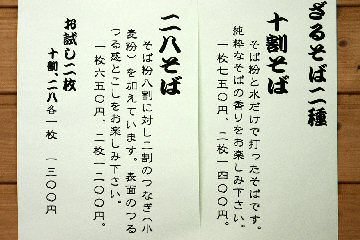 ざるそば二種
十割そば
そば粉と水だけで打ったそばです。
純粋なそばの香りをお楽しみ下さい。
一枚七五〇円、二枚一四〇〇円。
二八そば
そば粉八割に対し二割のつなぎ（小
麦粉）を加えています。表面のつる
つる感とこしをお楽しみ下さい。
一枚六五〇円、二枚一二〇〇円。
お試し二枚
十割、二八各一枚 一三〇〇円